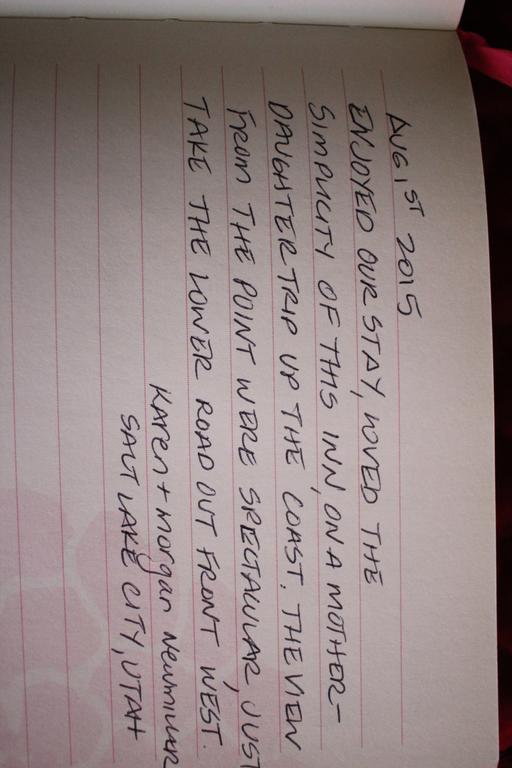 AUG 1ST 2015
ENJOYED OUR STAY, LOVED THE
SIMPLICITY OF THIS INN, ON A MOTHER-
DAUGHTER TRIP UP THE COAST. THE VIEW
FROM THE POINT WERE SPECTACULAR, JUST
TAKE THE LOWER ROAD OUT FRONT WEST.
Karen + Morgan
SALT LAKE CITY, UTAH